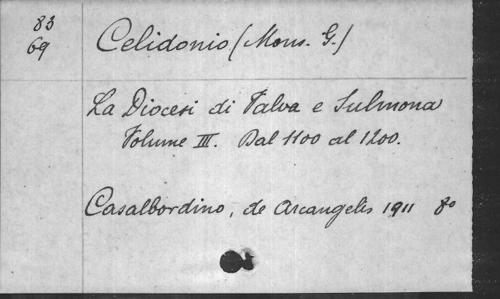 83
69
Celidonio (Mons. G.)
La Diocesi di Valva e Sulmona
Volume III. Dal 1100 al 1200.
Casalbordino, de Arcangelis 1911 8º